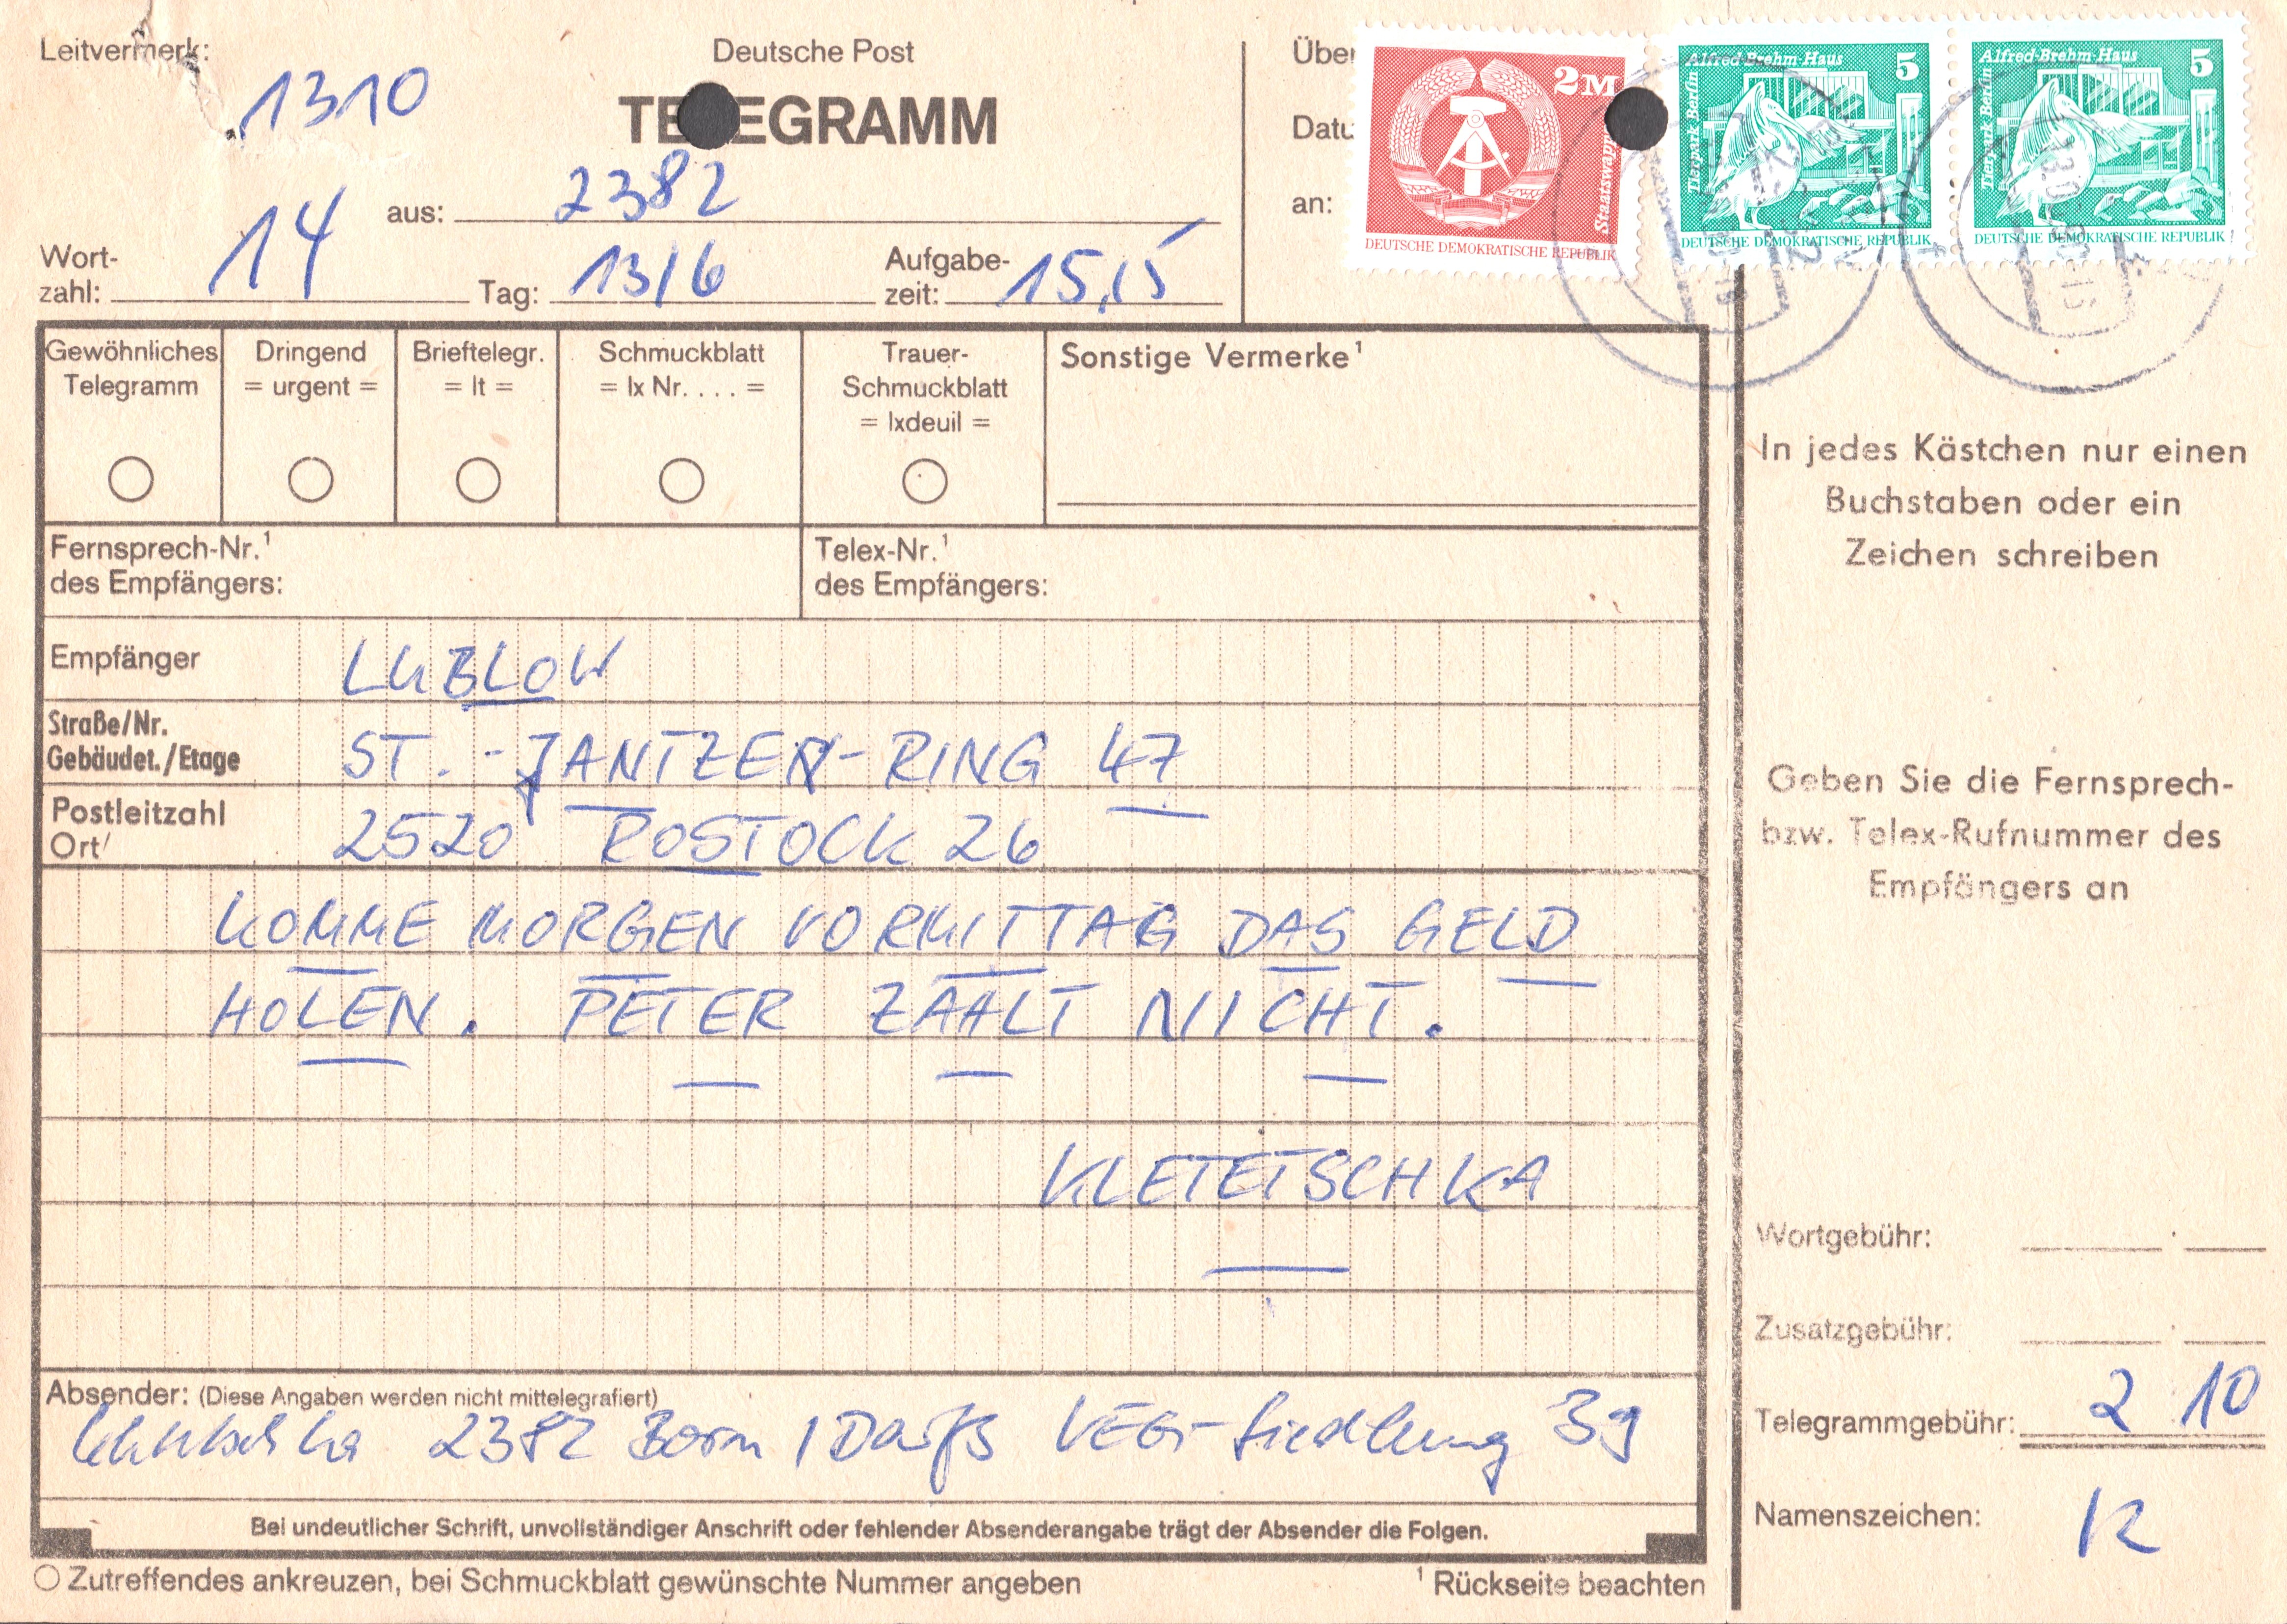 Leitvermerk:
1310
Deutsche Post
TELEGRAMM
aus: 2382
Wort-
zahl: 14
Tag: 13/6
Aufgabe-
zeit: 15,15
Über
Datu
an:
2M
Staatswapp
DEUTSCHE DEMOKRATISCHE REPUBLIK
Alfred-Brehm-Haus 5
Tierpark Berlin
DEUTSCHE DEMOKRATISCHE REPUBLIK
Alfred-Brehm-Haus 5
Tierpark Berlin
DEUTSCHE DEMOKRATISCHE REPUBLIK
Gewöhnliches
Telegramm
Dringend
= urgent =
Brieftelegr.
= lt =
Schmuckblatt
= lx Nr. . . . =
Trauer-
Schmuckblatt
= lxdeuil =
Sonstige Vermerke¹
Fernsprech-Nr.¹
des Empfängers:
Telex-Nr.¹
des Empfängers:
Empfänger LUBLOW
Straße/Nr.
Gebäudet./Etage ST.-JANTZEN-RING 47
Postleitzahl
Ort 2520 ROSTOCK 26
KOMME MORGEN VORMITTAG DAS GELD
HOLEN. PETER ZAHLT NICHT.
KLETETSCHKA
Absender: (Diese Angaben werden nicht mittelegrafiert)
2382 Born / Darß VEG-Siedlung 39
Bei undeutlicher Schrift, unvollständiger Anschrift oder fehlender Absenderangabe trägt der Absender die Folgen.
Zutreffendes ankreuzen, bei Schmuckblatt gewünschte Nummer angeben
¹ Rückseite beachten
In jedes Kästchen nur einen
Buchstaben oder ein
Zeichen schreiben
Geben Sie die Fernsprech-
bzw. Telex-Rufnummer des
Empfängers an
Wortgebühr:
Zusatzgebühr:
Telegrammgebühr: 2 10
Namenszeichen: K